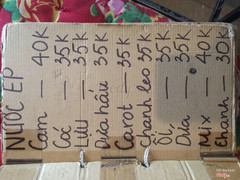 NƯỚC ÉP
Cam — 40K
Cóc — 35K
Lựu — 35K
Dưa hấu 35K
Carot — 35K
chanh leo 35K
ổi — 35K
Dưa — 35K
Mix — 40K
Chanh — 30K